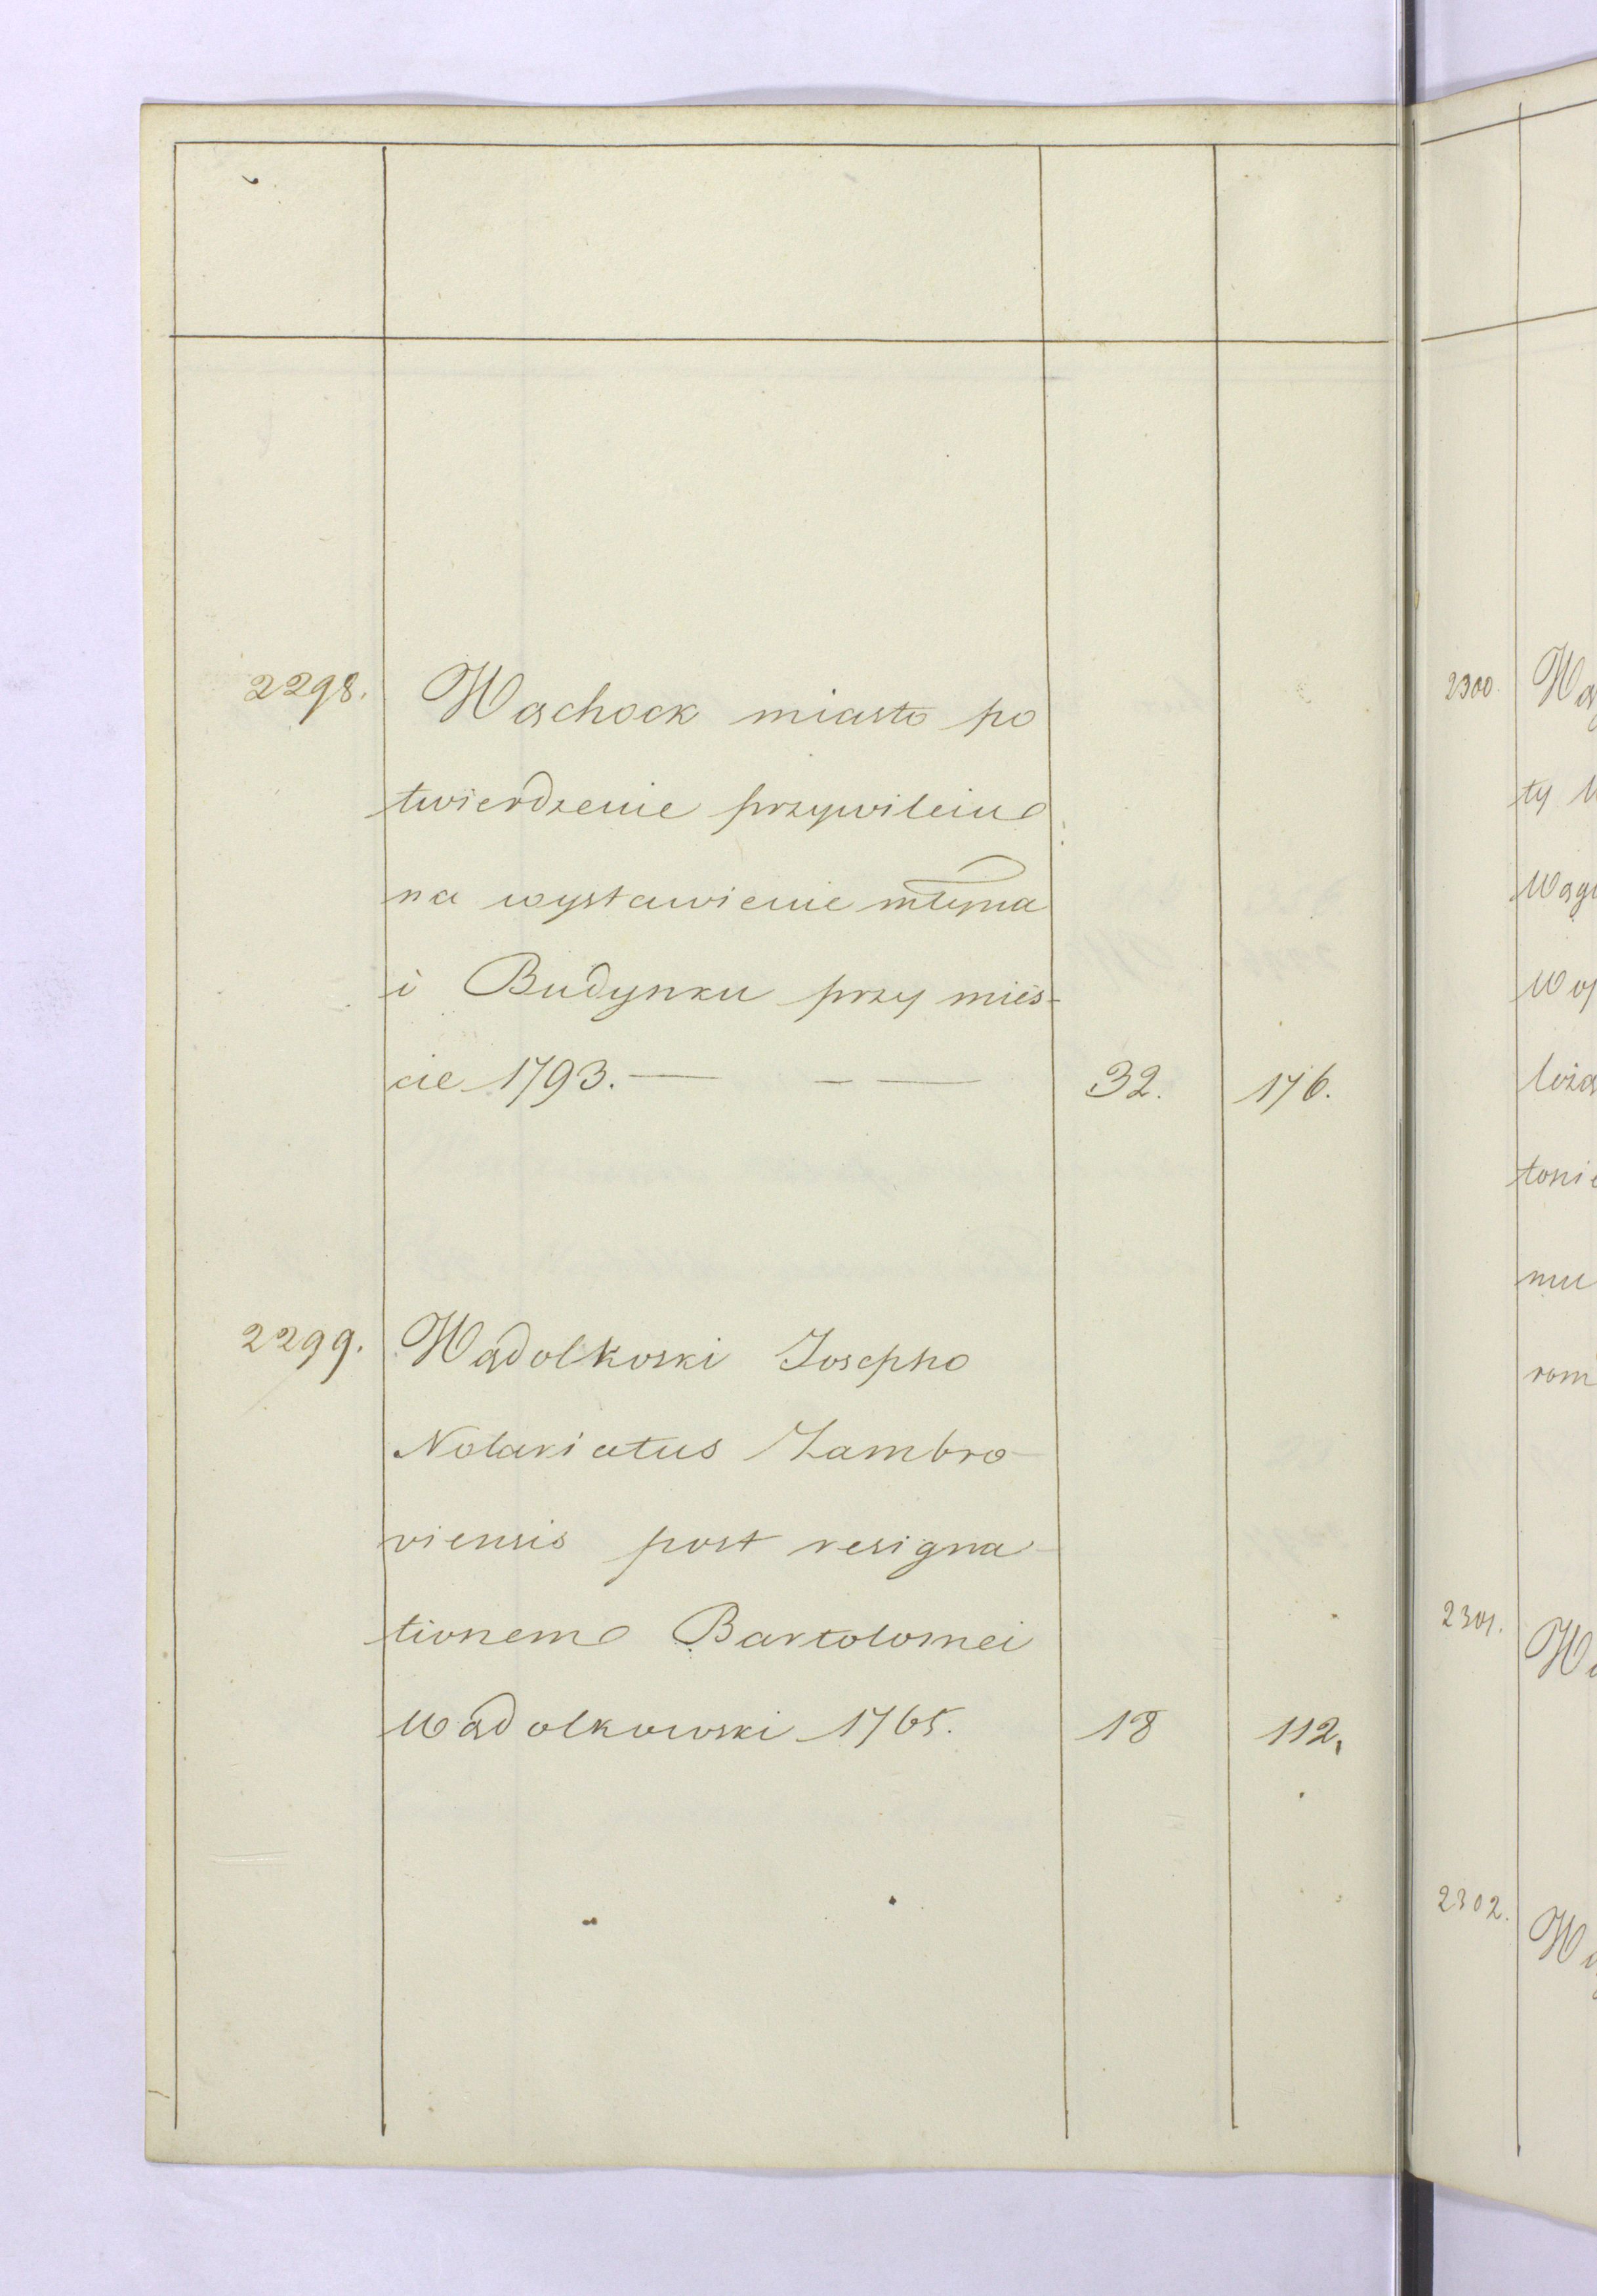 2298. Wąchock miasto po
twierdzenie przywileiu
na wystawienie młyna
i Budynku przy mieś-
cie 1793. — — — 32. 176.
2299. Wądolkoski Josepho
Notariatus Zambro-
viensis post resigna-
tionem Bartolomei
Wądolkowski 1765. 18 112.
2300.
ty
tonie
mu
rom
2301.
2302.